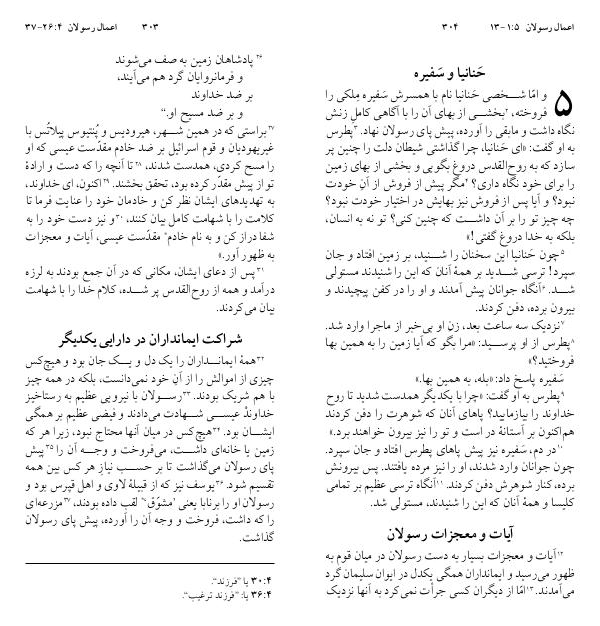 اعمال رسولان ۴:‏۲۶-۳۷
۳۰۳
۲۶ پادشاهان زمین به صف می‌شوند
و فرمانروایان گرد هم می‌آیند،
بر ضد خداوند
و بر ضد مسیح او.“
۲۷براستی که در همین شهر، هیرودیس و پُنتیوس پیلاتُس با
غیریهودیان و قوم اسرائیل بر ضد خادم مقدّست عیسی که او
را مسح کردی، همدست شدند، ۲۸تا آنچه را که دست و ارادهٔ
تو از پیش مقدّر کرده بود، تحقق بخشند. ۲۹اکنون، ای خداوند،
به تهدیدهای ایشان نظر کن و خادمان خود را عنایت فرما تا
کلامت را با شهامت کامل بیان کنند، ۳۰و نیز دست خود را به
شفا دراز کن و به نام خادم* مقدّست عیسی، آیات و معجزات
به ظهور آور.»
۳۱پس از دعای ایشان، مکانی که در آن جمع بودند به لرزه
درآمد و همه از روح‌القدس پر شده، کلام خدا را با شهامت
بیان می‌کردند.
شراکت ایمانداران در دارایی یکدیگر
۳۲همهٔ ایمانداران را یک دل و یک جان بود و هیچ‌کس
چیزی از اموالش را از آنِ خود نمی‌دانست، بلکه در همه چیز
با هم شریک بودند. ۳۳رسولان با نیرویی عظیم به رستاخیز
خداوندْ عیسی شهادت می‌دادند و فیضی عظیم بر همگی
ایشان بود. ۳۴هیچ‌کس در میان آنها محتاج نبود، زیرا هر که
زمین یا خانه‌ای داشت، می‌فروخت و وجه آن را ۳۵پیش
پای رسولان می‌گذاشت تا بر حسب نیازِ هر کس بین همه
تقسیم شود. ۳۶یوسف نیز که از قبیلهٔ لاوی و اهل قپرس بود و
رسولان او را برنابا یعنی ’مشوّق‘* لقب داده بودند، ۳۷مزرعه‌ای
را که داشت، فروخت و وجه آن را آورده، پیش پای رسولان
گذاشت.
۴:‏۳۰ یا ”فرزند“.
۴:‏۳۶ یا: ”فرزند ترغیب“.
اعمال رسولان ۵:‏۱-۱۳
۳۰۴
حَنانیا و سَفیره
۵ و امّا شخصی حَنانیا نام با همسرش سَفیره مِلکی را
فروخته، ۲بخشی از بهای آن را با آگاهی کاملِ زنش
نگاه داشت و مابقی را آورده، پیش پای رسولان نهاد. ۳پطرس
به او گفت: «ای حَنانیا، چرا گذاشتی شیطان دلت را چنین پر
سازد که به روح‌القدس دروغ بگویی و بخشی از بهای زمین
را برای خود نگاه داری؟ ۴مگر پیش از فروش از آنِ خودت
نبود؟ و آیا پس از فروش نیز بهایش در اختیار خودت نبود؟
چه چیز تو را بر آن داشت که چنین کنی؟ تو نه به انسان،
بلکه به خدا دروغ گفتی!»
۵چون حَنانیا این سخنان را شنید، بر زمین افتاد و جان
سپرد! ترسی شدید بر همهٔ آنان که این را شنیدند مستولی
شد. ۶آنگاه جوانان پیش آمدند و او را در کفن پیچیدند و
بیرون برده، دفن کردند.
۷نزدیک سه ساعت بعد، زن او بی‌خبر از ماجرا وارد شد.
۸پطرس از او پرسید: «مرا بگو که آیا زمین را به همین بها
فروختید؟»
سَفیره پاسخ داد: «بله، به همین بها.»
۹پطرس به او گفت: «چرا با یکدیگر همدست شدید تا روح
خداوند را بیازمایید؟ پاهای آنان که شوهرت را دفن کردند
هم‌اکنون بر آستانهٔ در است و تو را نیز بیرون خواهند برد.»
۱۰در دم، سَفیره نیز پیش پاهای پطرس افتاد و جان سپرد.
چون جوانان وارد شدند، او را نیز مرده یافتند. پس بیرونش
برده، کنار شوهرش دفن کردند. ۱۱آنگاه ترسی عظیم بر تمامی
کلیسا و همهٔ آنان که این را شنیدند، مستولی شد.
آیات و معجزات رسولان
۱۲آیات و معجزات بسیار به دست رسولان در میان قوم به
ظهور می‌رسید و ایمانداران همگی یکدل در ایوان سلیمان گرد
می‌آمدند. ۱۳امّا از دیگران کسی جرأت نمی‌کرد به آنها نزدیک